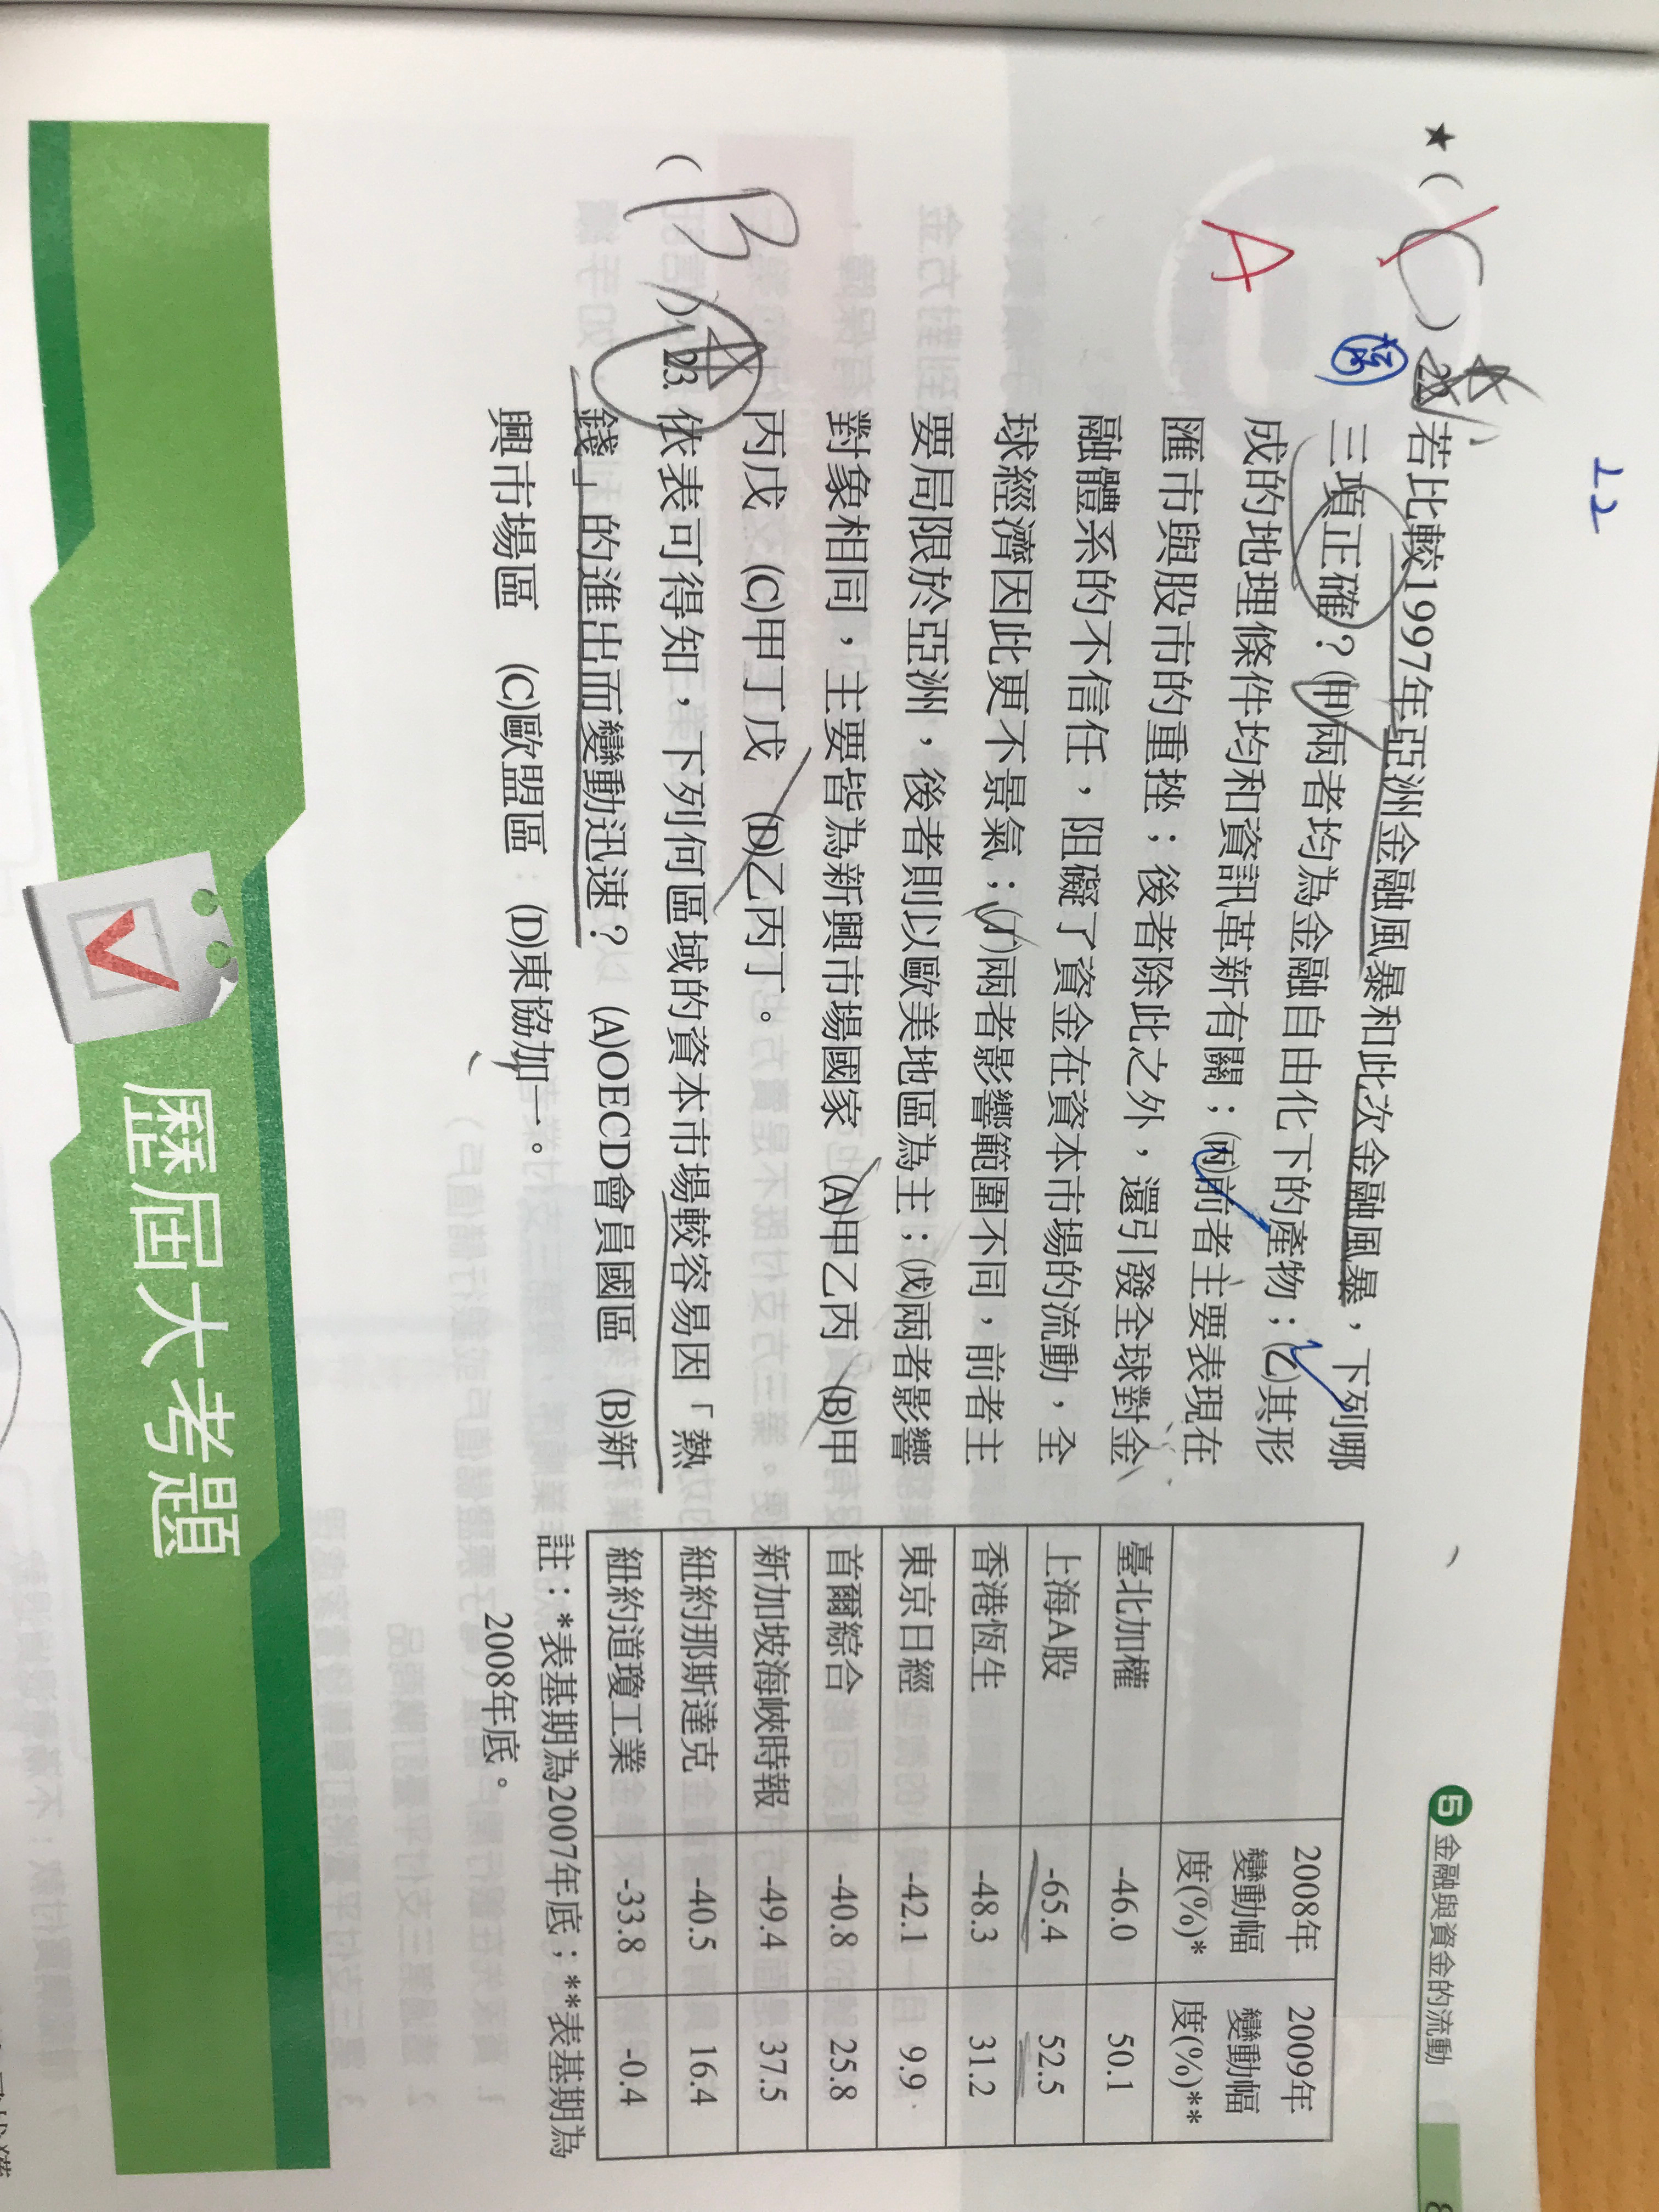 22
⑤ 金融與資金的流動
★( C ) 22. 若比較1997年亞洲金融風暴和此次金融風暴，下列哪
A
三項正確？(甲)兩者均為金融自由化下的產物；(乙)其形
成的地理條件均和資訊革新有關；(丙)前者主要表現在
匯市與股市的重挫；後者除此之外，還引發全球對金
融體系的不信任，阻礙了資金在資本市場的流動，全
球經濟因此更不景氣；(丁)兩者影響範圍不同，前者主
要局限於亞洲，後者則以歐美地區為主；(戊)兩者影響
對象相同，主要皆為新興市場國家 (A)甲乙丙 (B)甲
丙戊 (C)甲丁戊 (D)乙丙丁。
( B ) 23. 依表可得知，下列何區域的資本市場較容易因「熱
錢」的進出而變動迅速？ (A)OECD會員國區 (B)新
興市場區 (C)歐盟區 (D)東協加一。
2008年變動幅度(%)* 2009年變動幅度(%)**
臺北加權 -46.0 50.1
上海A股 -65.4 52.5
香港恆生 -48.3 31.2
東京日經 -42.1 9.9
首爾綜合 -40.8 25.8
新加坡海峽時報 -49.4 37.5
紐約那斯達克 -40.5 16.4
紐約道瓊工業 -33.8 -0.4
註：*表基期為2007年底；**表基期為
2008年底。
歷屆大考題